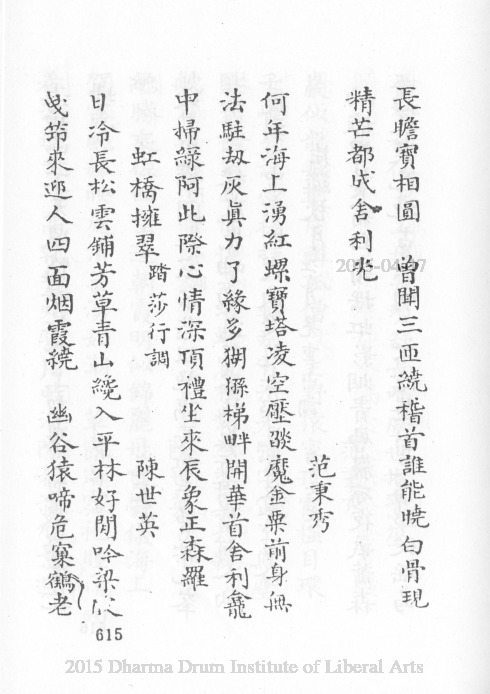 長瞻寶相圓　曾聞三匝繞稽首誰能曉白骨現
精芒都成舍利光
范秉秀
何年海上湧紅螺寶塔凌空壓燄魔金粟前身無
法駐刼灰眞力了緣多猢猻梯畔開華首舍利龕
中掃綠阿此際心情深頂禮坐來辰象正森羅
虹橋擁翠 踏莎行調　陳世英
日冷長松雲鋪芳草青山纔入平林好閒吟梁
曳笻來迎人四面烟霞繞　幽谷猿啼危窠鶴老
615
2015-04-07
2015 Dharma Drum Institute of Liberal Arts